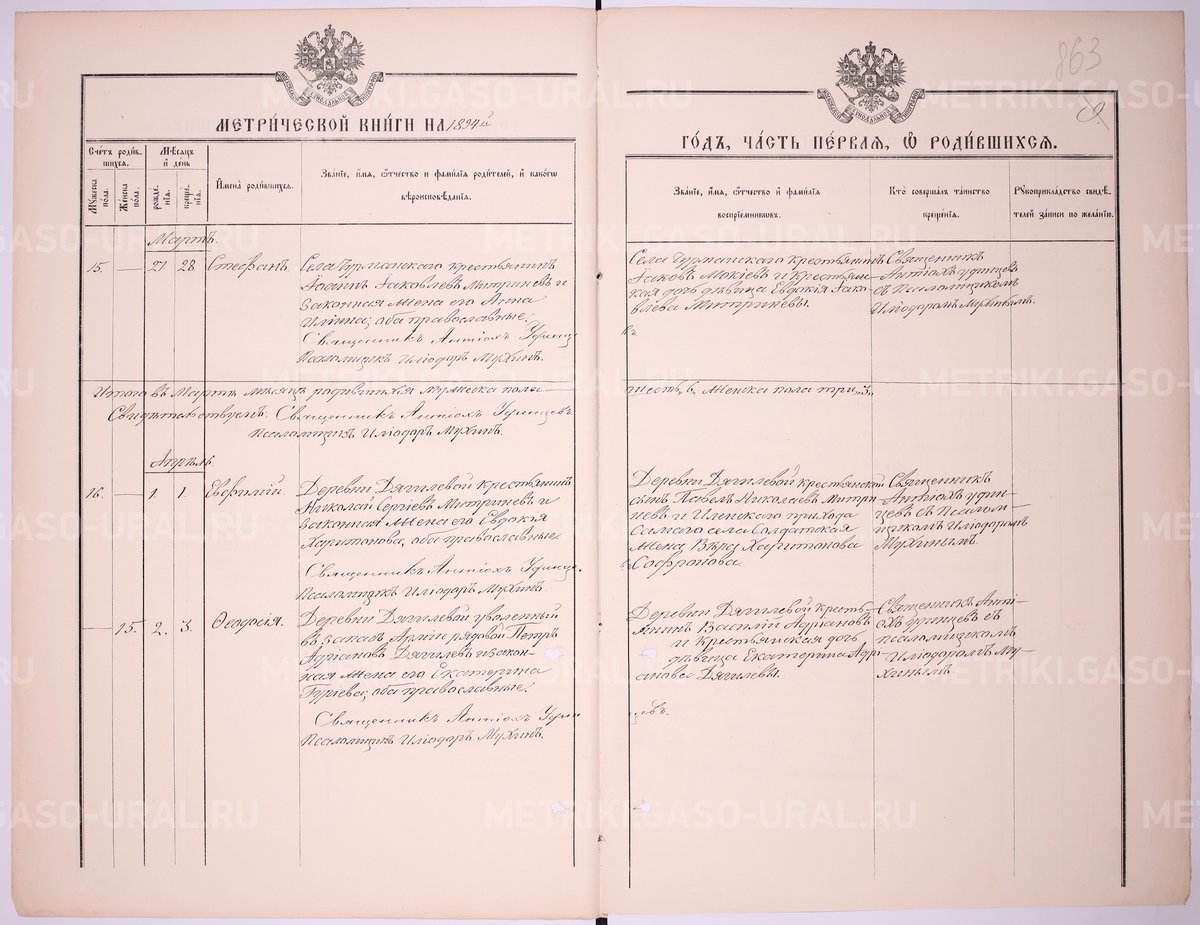 863
МЕТРИ́ЧЕСКОЙ КНИ́ГИ НА 1894й
ГО́ДЪ, ЧА́СТЬ ПЕ́РВАЯ, Ѽ РОДИ́ВШИХСЯ.
Сче́тъ роди́в-
шихся.
Му́жеска по́ла.
Же́нска по́ла.
Мѣ́сяцъ
и҆ де́нь
рожде́-
нїя.
креще́-
нїя.
И҆мена̀ роди́вшихся.
Зва́нїе, и҆́мя, ѻ҆́тчество и҆ фами́лїя роди́телей, и҆ како́гѡ
вѣроисповѣ́данїя.
Зва́нїе, и҆́мя, ѻ҆́тчество и҆ фами́лїя
воспрїе́мниковъ.
Кто̀ соверша́лъ та́инство
креще́нїя.
Рꙋкоприкла́дство свидѣ́-
телей за́писи по жела́нїю.
Мартъ.
15. — 27 28 Стефанъ.
Села Чурманскаго крестьянинъ
Іоаннъ Іаковлевъ Митриневъ и
законная жена его Анна
Илиина; оба православные.
Священникъ Антіохъ Удинцевъ.
Псаломщикъ Иліодоръ Мухинъ.
Села Чурманскаго крестьянинъ
Іаковъ Мокіевъ и крестьян-
ская дочь дѣвица Евдокія Іако-
влева Митриневы.
Священникъ
Антіохъ Удинцевъ
съ Псаломщикомъ
Иліодоромъ Мухинымъ.
Итого въ Мартѣ мѣсяцѣ родившихся мужеска пола — шесть, 6, женска пола три, 3,
Свидѣтельствуемъ: Священникъ Антіохъ Удинцевъ.
Псаломщикъ Иліодоръ Мухинъ.
Апрѣль.
16. — 1. 1. Евфимій.
Деревни Дягилевой крестьянинъ
Николай Сергіевъ Митриневъ и
законная жена его Евдокія
Харитонова; оба православные.
Священникъ Антіохъ Удинцевъ.
Псаломщикъ Иліодоръ Мухинъ.
Деревни Дягилевой крестьянской
сынъ Павелъ Николаевъ Митри-
невъ и Иленскаго прихода
самаго села солдатская
жена Вѣра Харитонова
Софронова.
Священникъ
Антіохъ Удин-
цевъ съ Псалом-
щикомъ Иліодоромъ
Мухинымъ.
— 15. 2. 3. Ѳеодосія.
Деревни Дягилевой уволенный
въ запасъ Арміи рядовой Петръ
Адріановъ Дягилевъ и закон-
ная жена его Екатерина
Гуріева; оба православные.
Священникъ Антіохъ Удинцевъ.
Псаломщикъ Иліодоръ Мухинъ.
Деревни Дягилевой кресть-
янинъ Василій Адріановъ
и крестьянская дочь
дѣвица Екатерина Адрі-
анова Дягилевы.
Священникъ Анті-
охъ Удинцевъ съ
псаломщикомъ
Иліодоромъ Му-
хинымъ.
METRIKI.GASO-URAL.RU